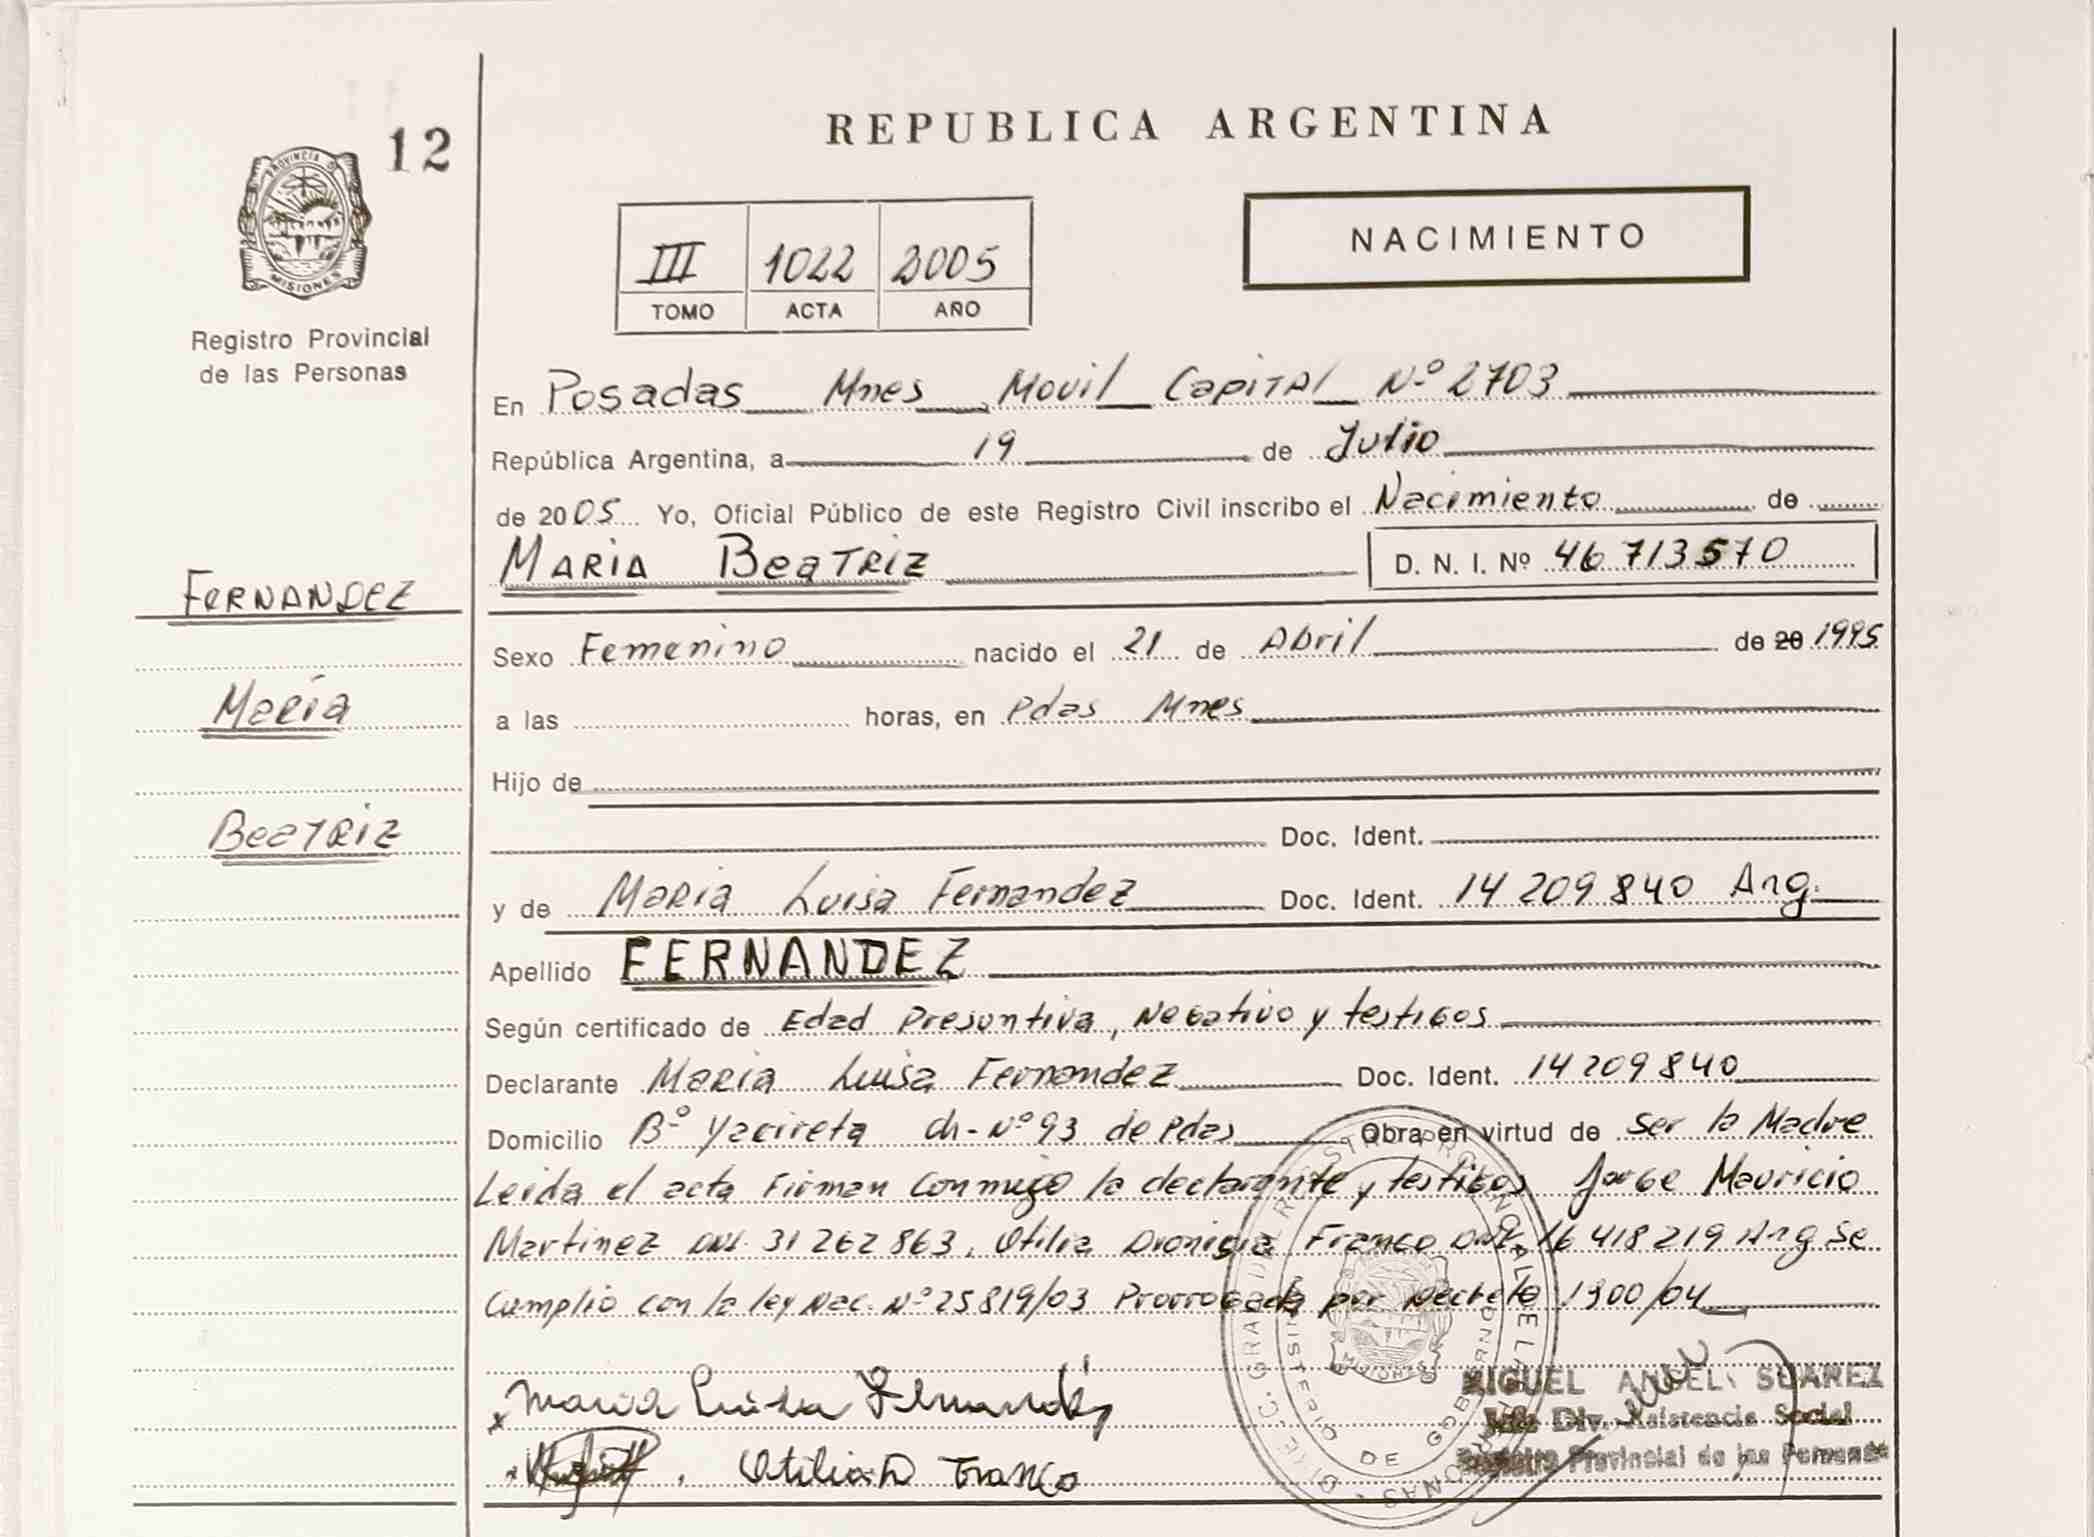 REPUBLICA ARGENTINA
12
PROVINCIA DE
MISIONES
Registro Provincial
de las Personas
III 1022 2005
TOMO ACTA AÑO
NACIMIENTO
En Posadas Mnes Movil Capital Nº 2703
República Argentina, a 19 de Julio
de 2005 Yo, Oficial Público de este Registro Civil inscribo el Nacimiento de
MARIA BeaTRiz D. N. I. Nº 46 713570
FeRNANDEZ
Sexo Femenino nacido el 21 de Abril de 20 1995
María
a las horas, en Pdas Mnes
Hijo de
BeaTRiz
Doc. Ident.
y de Maria Luisa Fernandez Doc. Ident. 14 209 840 Arg.
Apellido FERNANDEZ
Según certificado de Edad Presuntiva, Negativo y testigos
Declarante Maria Luisa Fernandez Doc. Ident. 14 209 840
Domicilio Bº Yacireta ch-Nº 93 de Pdas Obra en virtud de ser la Madre
Leida el acta Firman Conmigo la declarante y testigos Jorge Mauricio
Martinez DNI. 31 262 863, Otilia Dionisia Franco DNI. 16 418 219 Arg Se
Cumplio con la ley Nac. Nº 25819/03 Prorrogada por Decreto 1300/04
Maria Luisa Fernandez
MIGUEL ANGEL SUAREZ
Jefe Div. Asistencia Social
Registro Provincial de las Personas
Otilia D Franco
MINISTERIO DE GOBIERNO